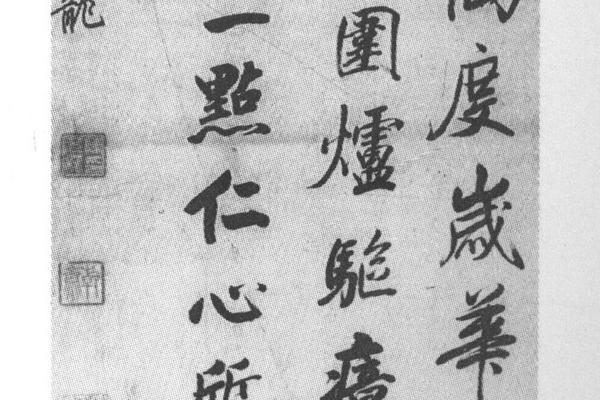 度歲華
圍爐驅
一點仁心所
龍